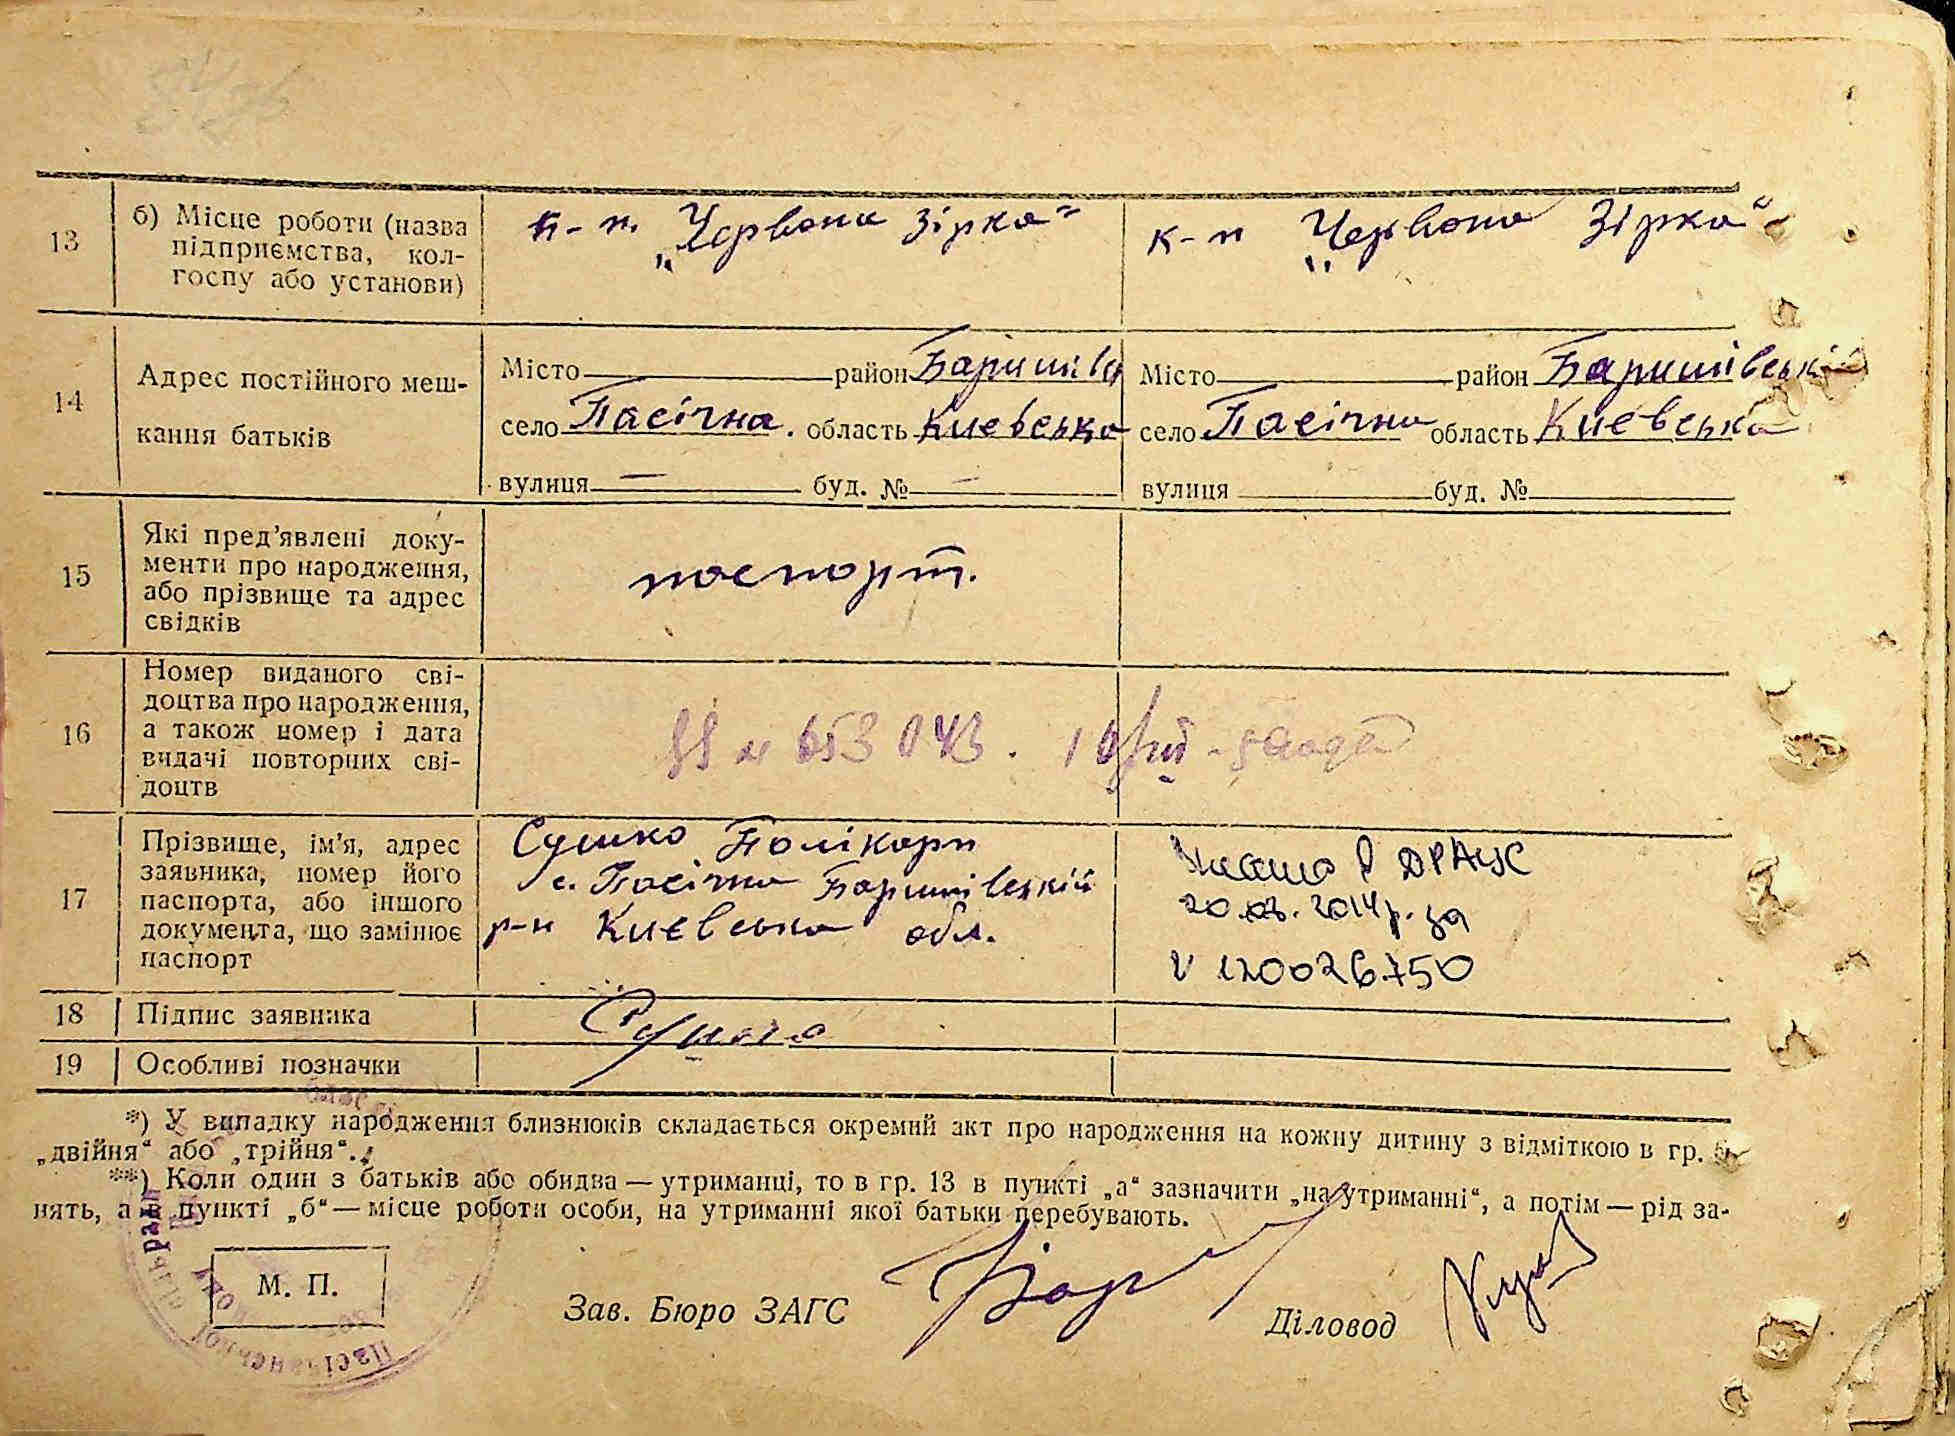 13
б) Місце роботи (назва
підприємства, кол-
госпу або установи)
к-п. „Червона Зірка"
к-п „Червона Зірка"
14
Адрес постійного меш-
кання батьків
Місто район Баришівс
село Пасічна. область Киевська
вулиця — буд. № —
Місто район Баришівській
село Пасічна область Киевська
вулиця буд. №
15
Які пред'явлені доку-
менти про народження,
або прізвище та адрес
свідків
паспорт.
16
Номер виданого сві-
доцтва про народження,
а також номер і дата
видачі повторних сві-
доцтв
653043.
17
Прізвище, ім'я, адрес
заявника, номер його
паспорта, або іншого
документа, що замінює
паспорт
Сушко Полікарп
с. Пасічна Баришівській
р-н Києвська обл.
ДРАЦС
20.03.2014р. за
18
Підпис заявника
19
Особливі позначки
*) У випадку народження близнюків складається окремий акт про народження на кожну дитину з відміткою в гр.
„двійня“ або „трійня“.
**) Коли один з батьків або обидва — утриманці, то в гр. 13 в пункті „а“ зазначити „на утриманні“, а потім — рід за-
нять, а в пункті „б“ — місце роботи особи, на утриманні якої батьки перебувають.
М. П.
Зав. Бюро ЗАГС
Діловод